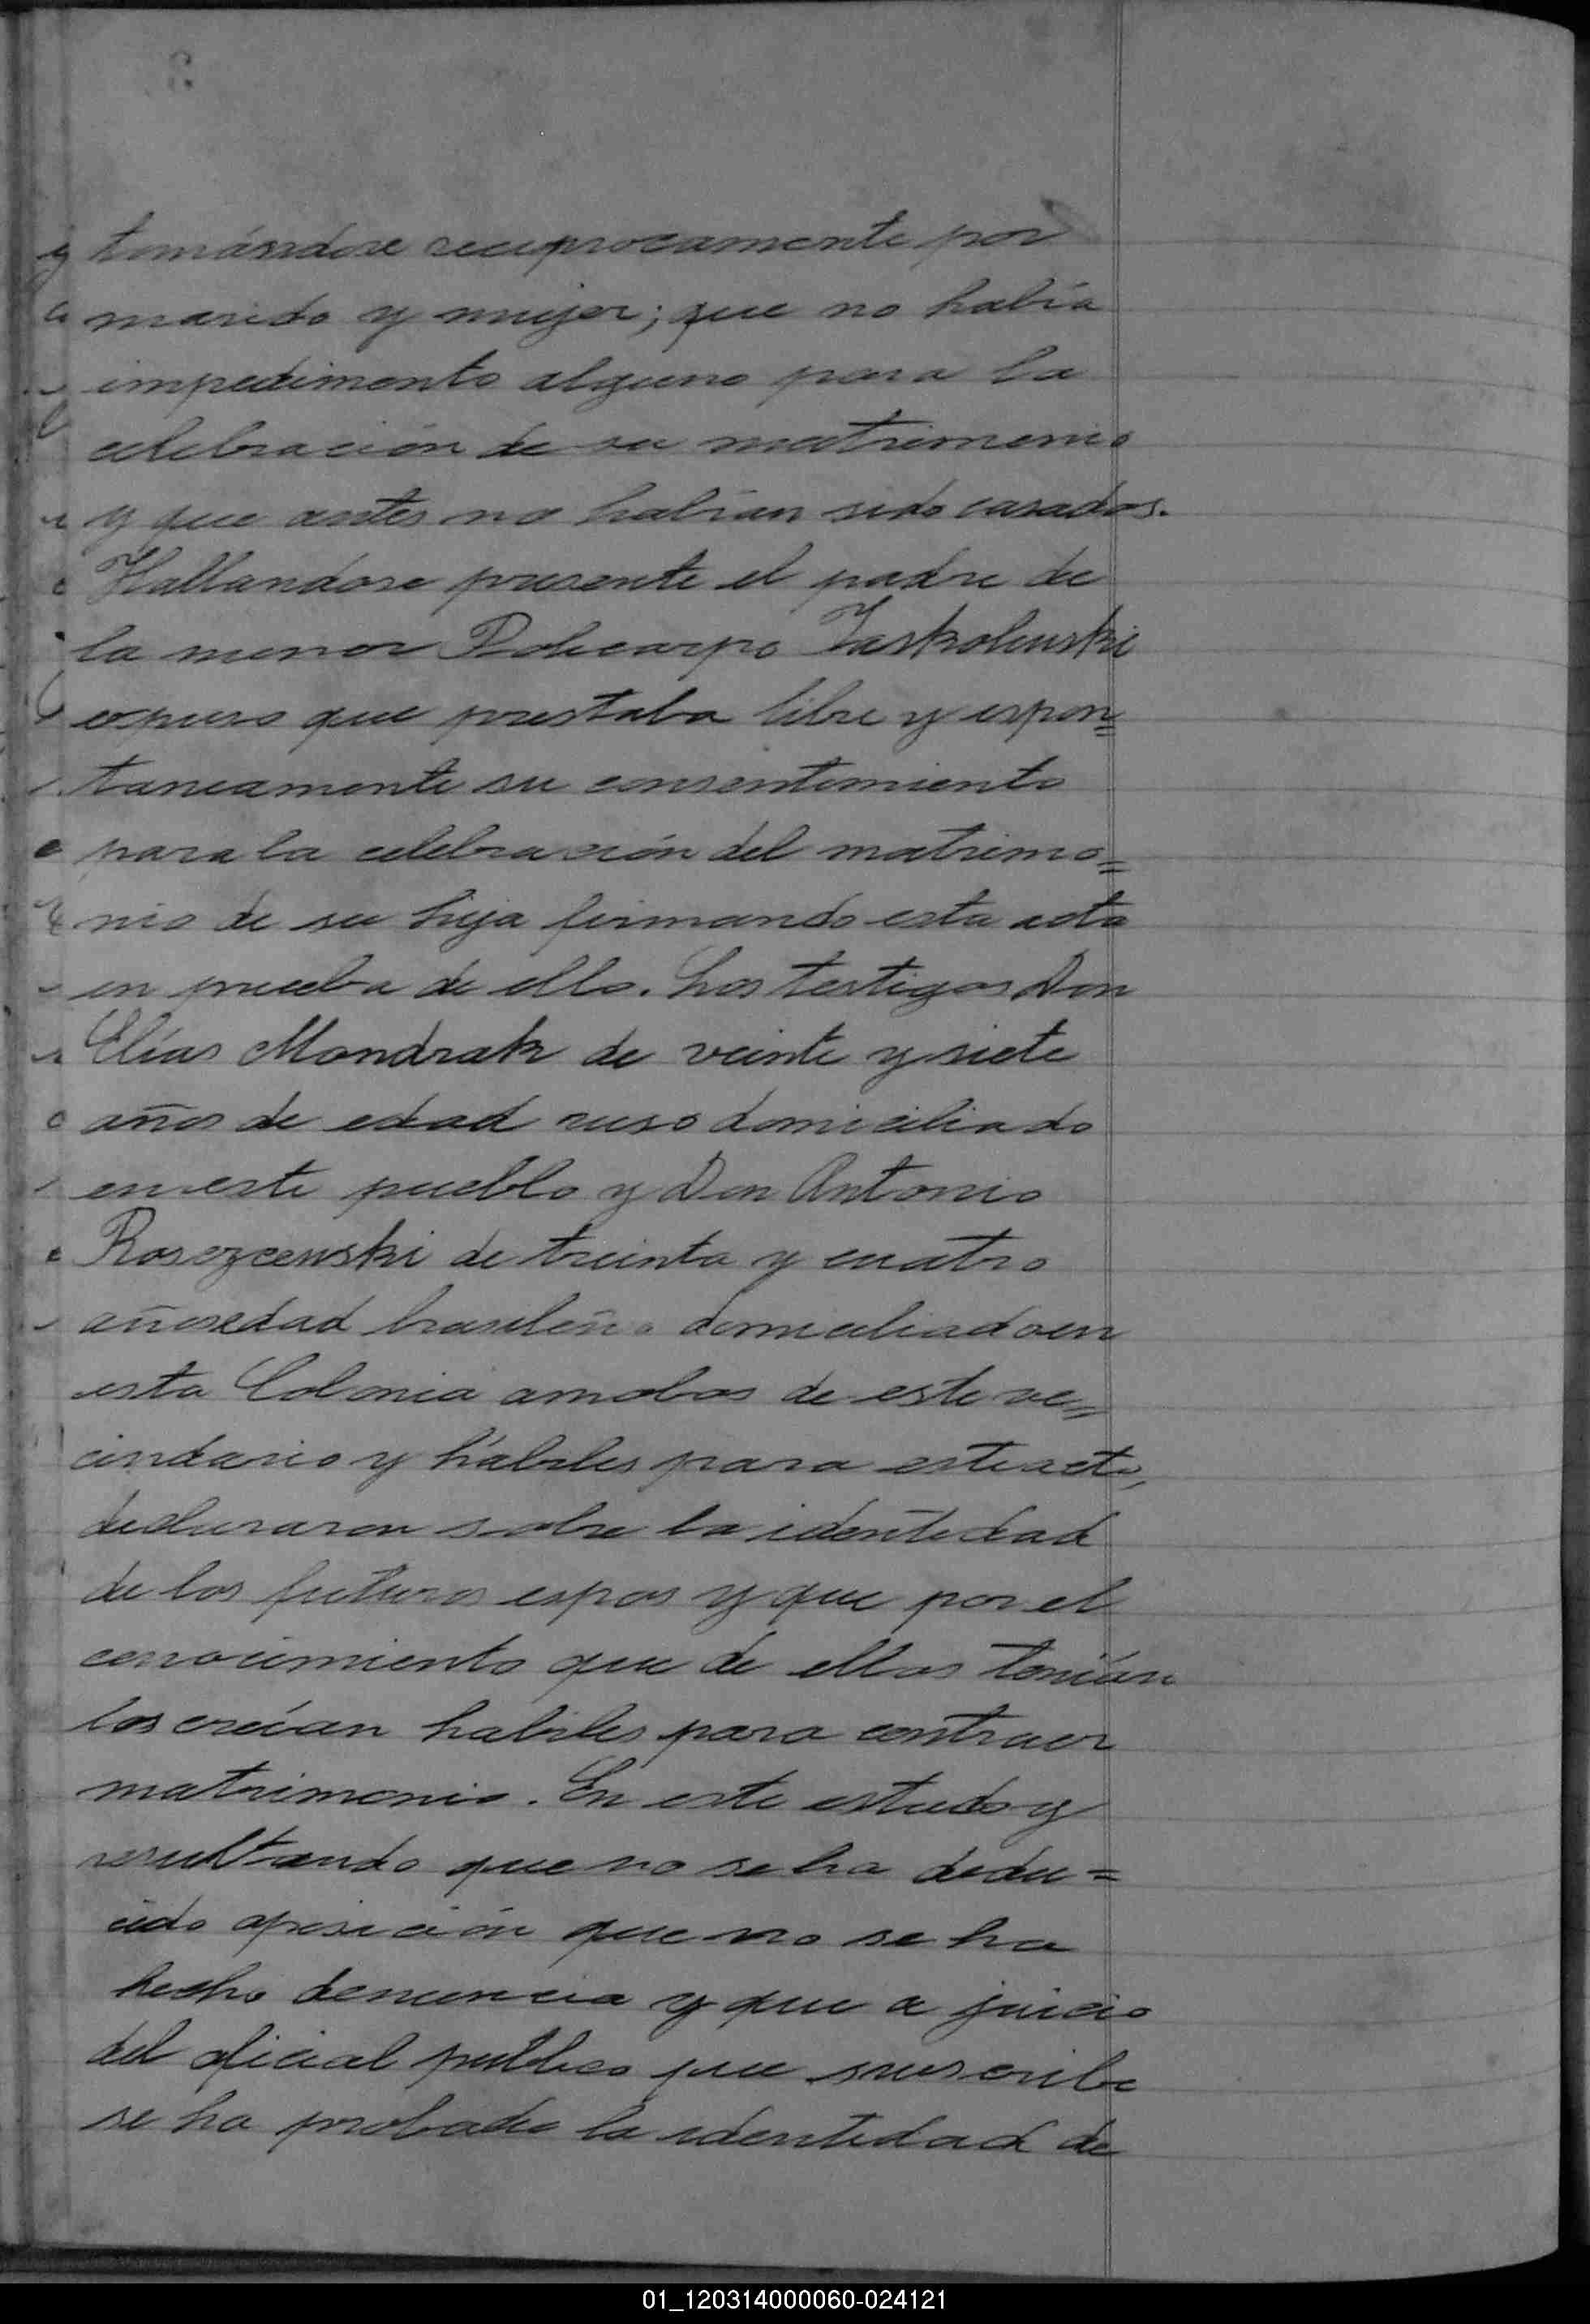 tomándose reciprocamente por
marido y mujer; que no había
impedimento alguno para la
celebración de su matrimonio
y que antes no habían sido casados.
Hallandose presente el padre de
la menor Policarpo Jaskolewski
expuso que prestaba libre y espon=
taneamente su consentimiento
para la celebración del matrimo=
nio de su hija firmando esta acta
en prueba de ello. Los testigos Don
Elías Mondrak de veinte y siete
años de edad ruso domiciliado
en este pueblo y Don Antonio
Rosczcewski de treinta y cuatro
años edad brasileño domiciliado en
esta Colonia ambos de este ve=
cindario y hábiles para este acto,
declararon sobre la identidad
de los futuros espos y que por el
conocimiento que de ellos tenían
los creían habiles para contraer
matrimonio. En este estado y
resultando que no se ha dedu=
cido oposición que no se ha
hecho denuncia y que a juicio
del oficial publico que suscribe
se ha probado la identidad de
01_120314000060-024121